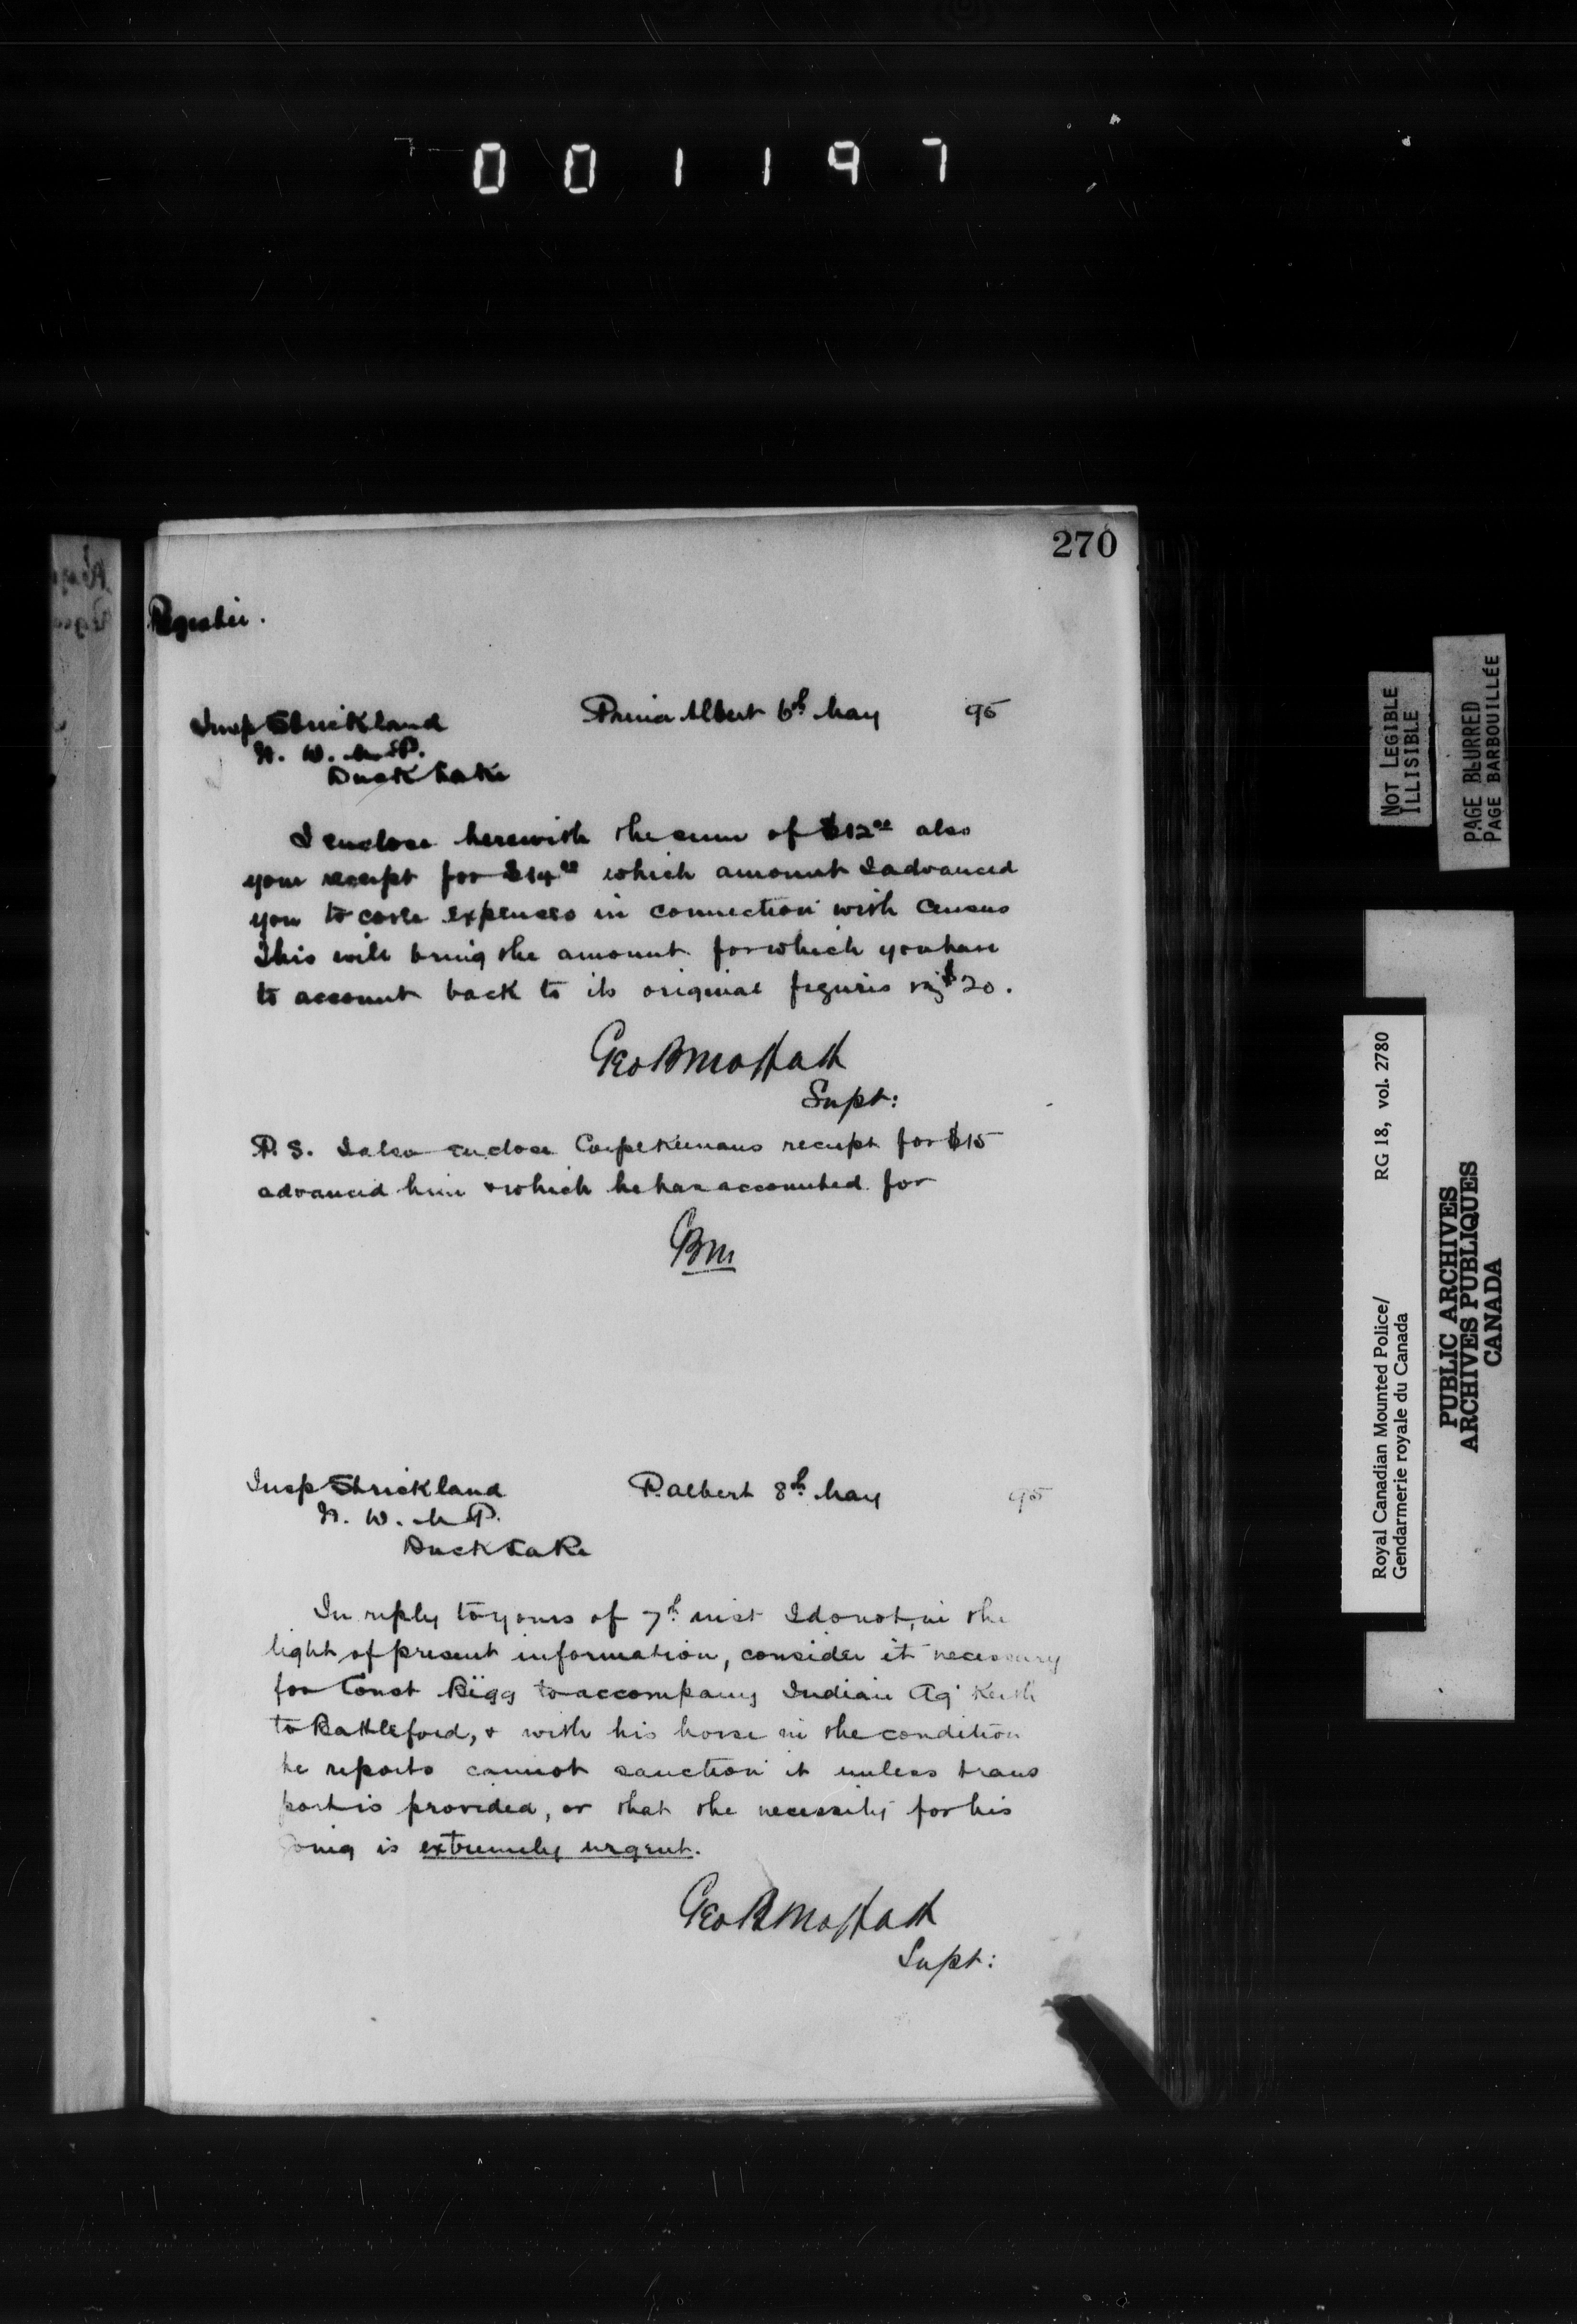 001197
270
Register.
Insp Strickland Prince Albert 6th May 95
N. W. M. P.
Duck Lake
I enclose herewith the sum of $12.00 also
your receipt for $14.00 which amount I advanced
you to cover expenses in connection with Census
This will bring the amount for which you have
to account back to its original figures viz $20.
Geo B Moffatt
Supt:
P. S. I also enclose Corpl Keenans receipt for $15
advanced him & which he has accounted for
GBM
Insp Strickland P. Albert 8th May 95
N. W. M. P.
Duck Lake
In reply to yours of 7th inst I do not, in the
light of present information, consider it necessary
for Const Bigg to accompany Indian Agt Keith
to Battleford, & with his horse in the condition
he reports cannot sanction it unless trans
port is provided, or that the necessity for his
going is extremely urgent.
Geo B Moffatt
Supt:
NOT LEGIBLE
ILLISIBLE
PAGE BLURRED
PAGE BARBOUILLÉE
Royal Canadian Mounted Police/
Gendarmerie royale du Canada
RG 18, vol. 2780
PUBLIC ARCHIVES
ARCHIVES PUBLIQUES
CANADA